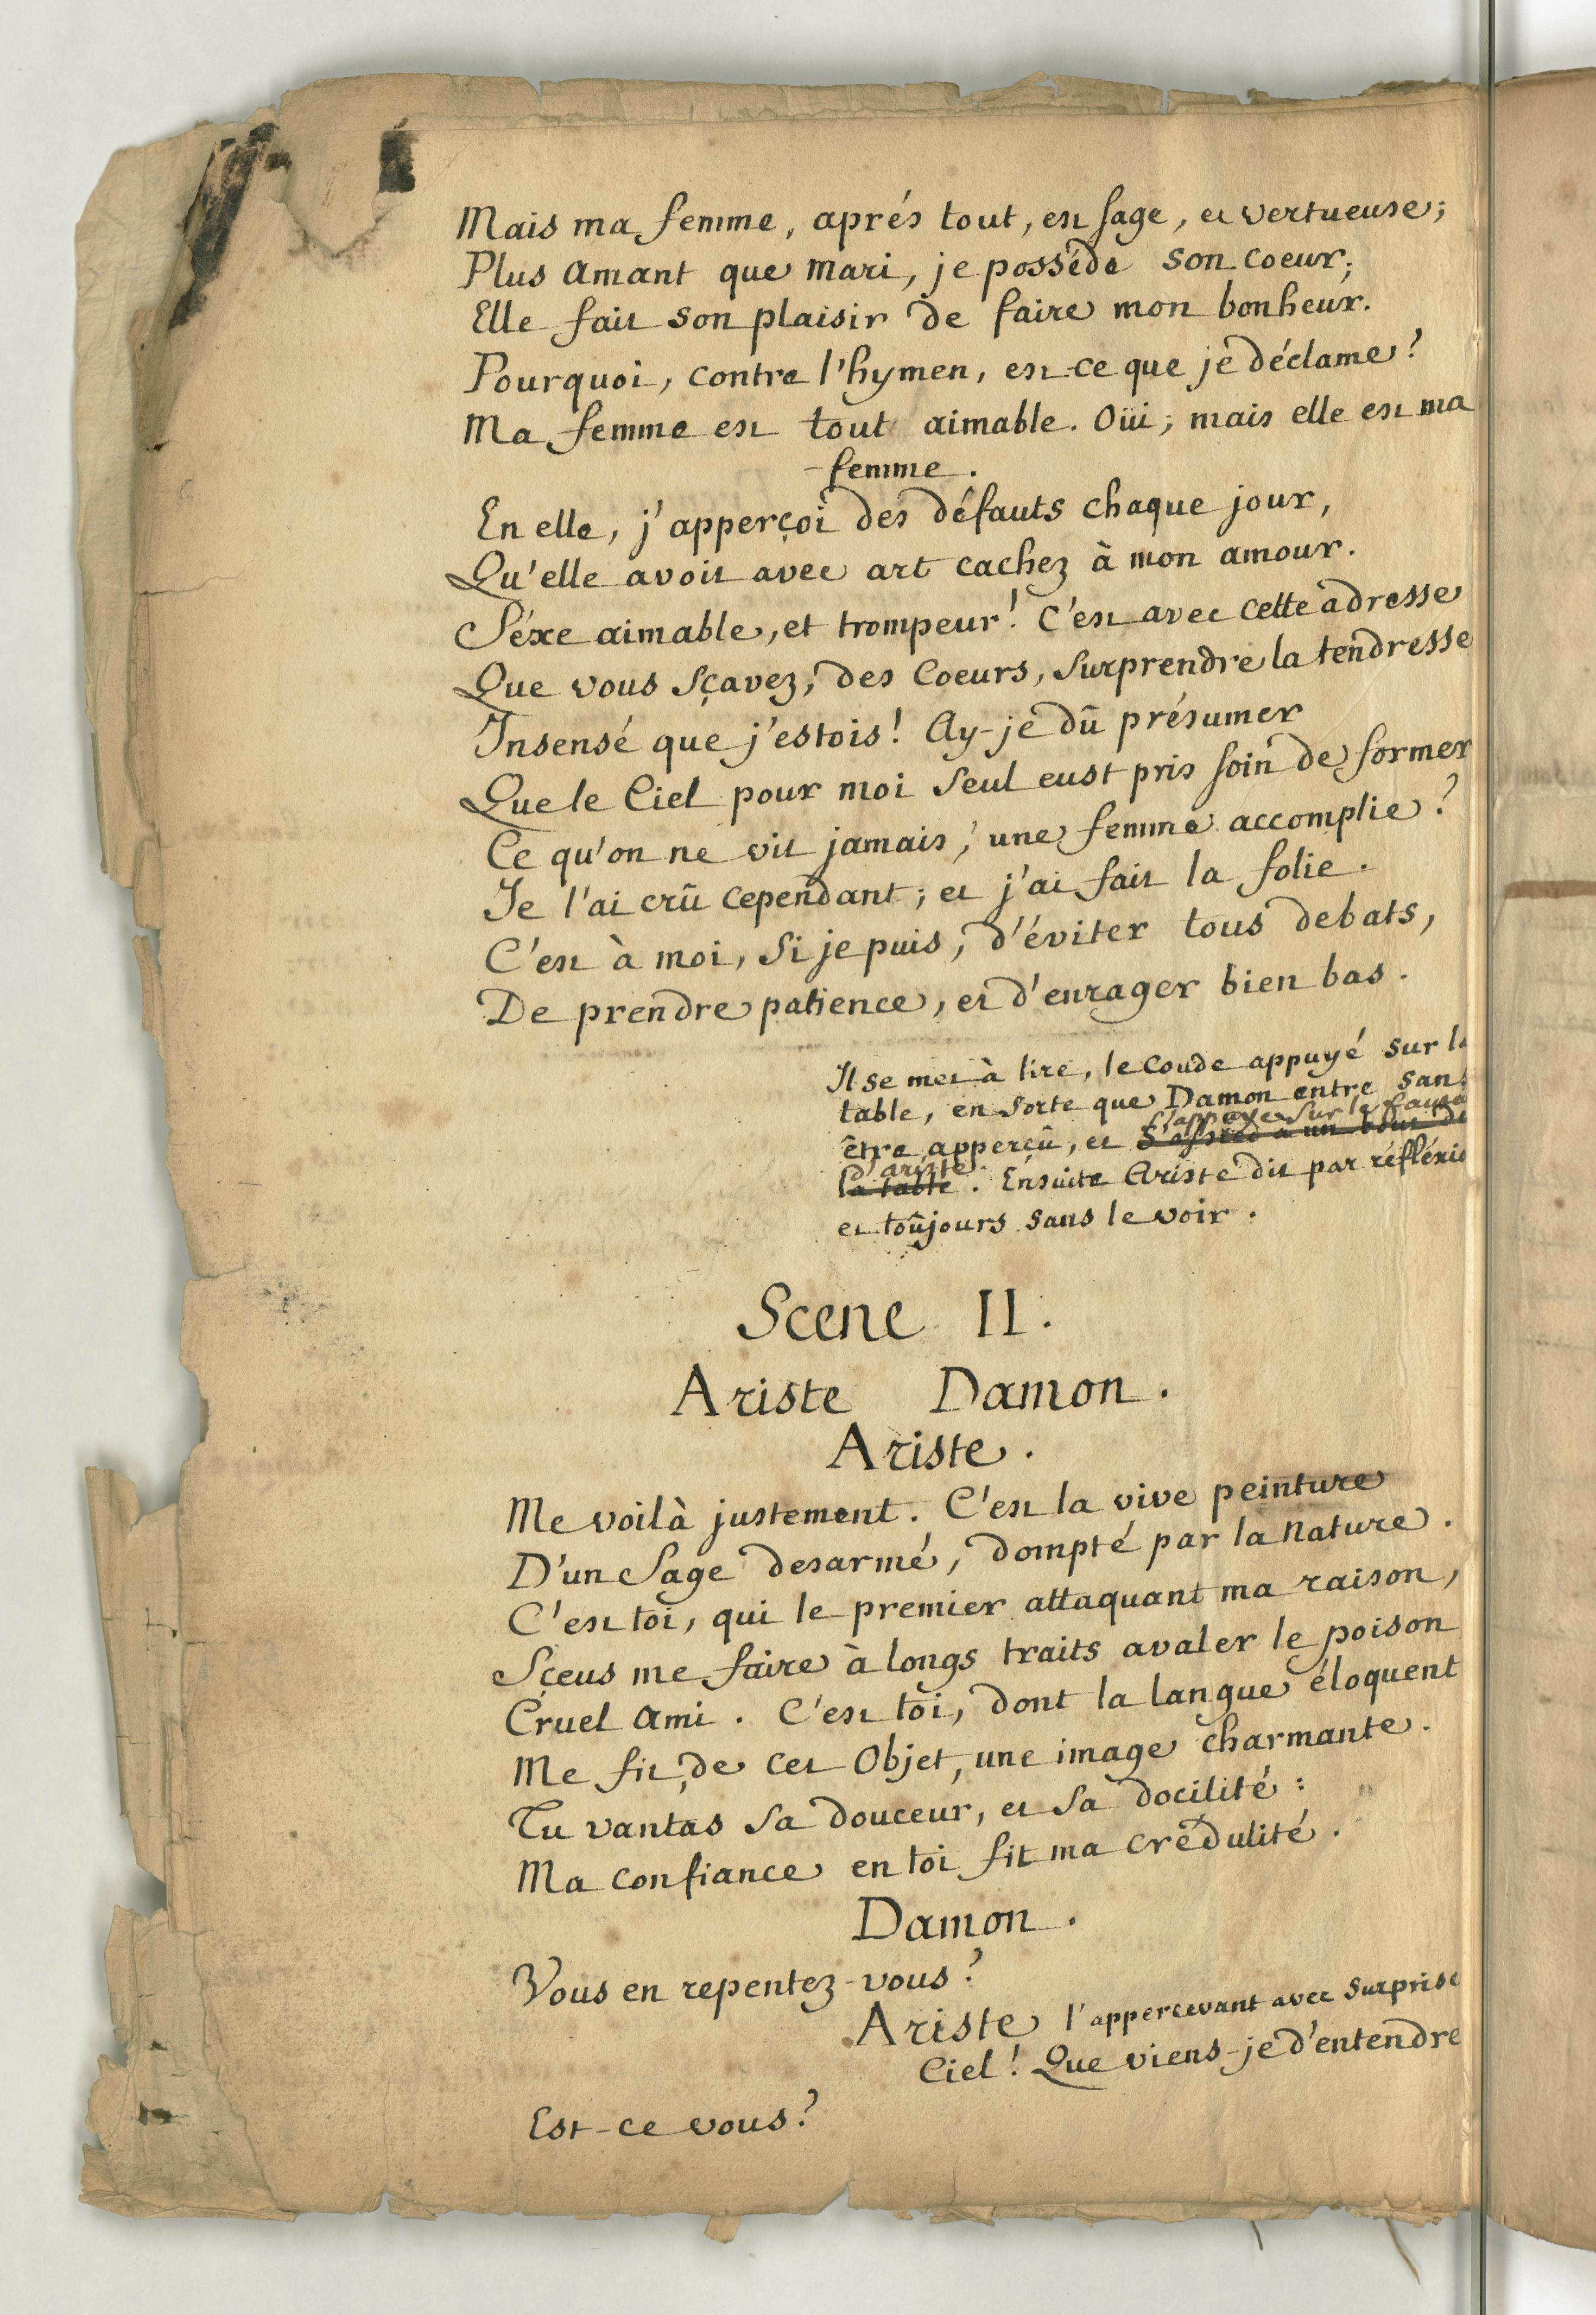 Mais ma femme, aprés tout, est sage, et vertueuse;
Plus amant que mari, je posséde son coeur;
Elle fait son plaisir de faire mon bonheur.
Pourquoi, contre l'hymen, est-ce que je déclame?
Ma femme est tout aimable. Oüi; mais elle est ma
femme.
En elle, j'apperçoi des défauts chaque jour,
Qu'elle avoit avec art cachez à mon amour.
Séxe aimable, et trompeur! C'est avec cette adresse
Que vous sçavez, des Coeurs, surprendre la tendresse
Insensé que j'estois! Ay-je dû présumer
Que le Ciel pour moi seul eust pris soin de former
Ce qu'on ne vit jamais, une femme accomplie?
Je l'ai crû cependant; et j'ai fait la folie.
C'est à moi, si je puis, d'éviter tous debats,
De prendre patience, et d'enrager bien bas.
Il se met à lire, le coude appuyé sur la
table, en sorte que Damon entre sans
s'appuye sur le
être apperçû, et s'assied à un bout de
d'ariste
la table. Ensuite Ariste dit par réfléxio
et toûjours sans le voir.
Scene II.
Ariste Damon.
Ariste.
Me voilà justement. C'est la vive peinture
D'un Sage desarmé, dompté par la nature.
C'est toi, qui le premier attaquant ma raison,
Sçeus me faire à longs traits avaler le poison
Cruel ami. C'est toi, dont la langue éloquent
Me fit, de cet Objet, une image charmante.
Tu vantas sa douceur, et sa docilité:
Ma confiance en toi fit ma crédulité.
Damon.
Vous en repentez-vous?
Ariste l'appercevant avec surprise
Ciel! Que viens-je d'entendre
Est-ce vous?